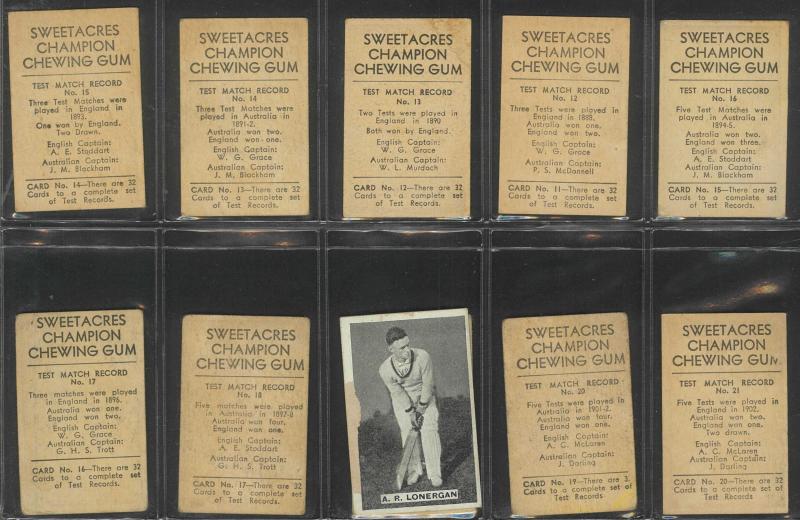 SWEETACRES
CHAMPION
CHEWING GUM
TEST MATCH RECORD
No. 15
Three Test Matches were
played in England in
1893.
One won by England.
Two Drawn.
English Captain:
A. E. Stoddart
Australian Captain:
J. M. Blackham
CARD No. 14—There are 32
Cards to a complete set
of Test Records.
SWEETACRES
CHAMPION
CHEWING GUM
TEST MATCH RECORD
No. 14
Three Test Matches were
played in Australia in
1891-2.
Australia won two.
England won one.
English Captain:
W. G. Grace
Australian Captain:
J. M. Blackham
CARD No. 13—There are 32
Cards to a complete set
of Test Records.
SWEETACRES
CHAMPION
CHEWING GUM
TEST MATCH RECORD
No. 13
Two Tests were played in
England in 1890
Both won by England.
English Captain:
W. G. Grace
Australian Captain:
W. L. Murdoch
CARD No. 12—There are 32
Cards to a complete set
of Test Records.
SWEETACRES
CHAMPION
CHEWING GUM
TEST MATCH RECORD
No. 12
Three Tests were played in
England in 1888.
Australia won one.
England won two.
English Captain:
W. G. Grace
Australian Captain:
P. S. McDonnell
CARD No. 11—There are 32
Cards to a complete set
of Test Records.
SWEETACRES
CHAMPION
CHEWING GUM
TEST MATCH RECORD
No. 16
Five Test Matches were
played in Australia in
1894-5.
Australia won two.
England won three.
English Captain:
A. E. Stoddart
Australian Captain:
J. M. Blackham
CARD No. 15—There are 32
Cards to a complete set
of Test Records.
SWEETACRES
CHAMPION
CHEWING GUM
TEST MATCH RECORD
No. 17
Three matches were played
in England in 1896.
Australia won one.
England won two.
English Captain:
W. G. Grace
Australian Captain:
G. H. S. Trott
CARD No. 16—There are 32
Cards to a complete set
of Test Records.
SWEETACRES
CHAMPION
CHEWING GUM
TEST MATCH RECORD
No. 18
Five matches were played
in Australia in 1897-8
Australia won four,
England won one.
English Captain:
A. E. Stoddart
Australian Captain:
G. H. S. Trott
CARD No. 17—There are 32
Cards to a complete set
of Test Records.
A. R. LONERGAN
SWEETACRES
CHAMPION
CHEWING GUM
TEST MATCH RECORD
No. 20
Five Tests were played in
Australia in 1901-2.
Australia won four.
England won one.
English Captain:
A. C. McLaren
Australian Captain:
J. Darling
CARD No. 19—There are 3
Cards to a complete set of
Test Records
SWEETACRES
CHAMPION
CHEWING GUM
TEST MATCH RECORD
No. 21
Five Tests were played in
England in 1902.
Australia won two.
England won one.
Two drawn.
English Captain:
A. C. McLaren
Australian Captain:
J. Darling
CARD No. 20—There are 32
Cards to a complete set of
Test Records